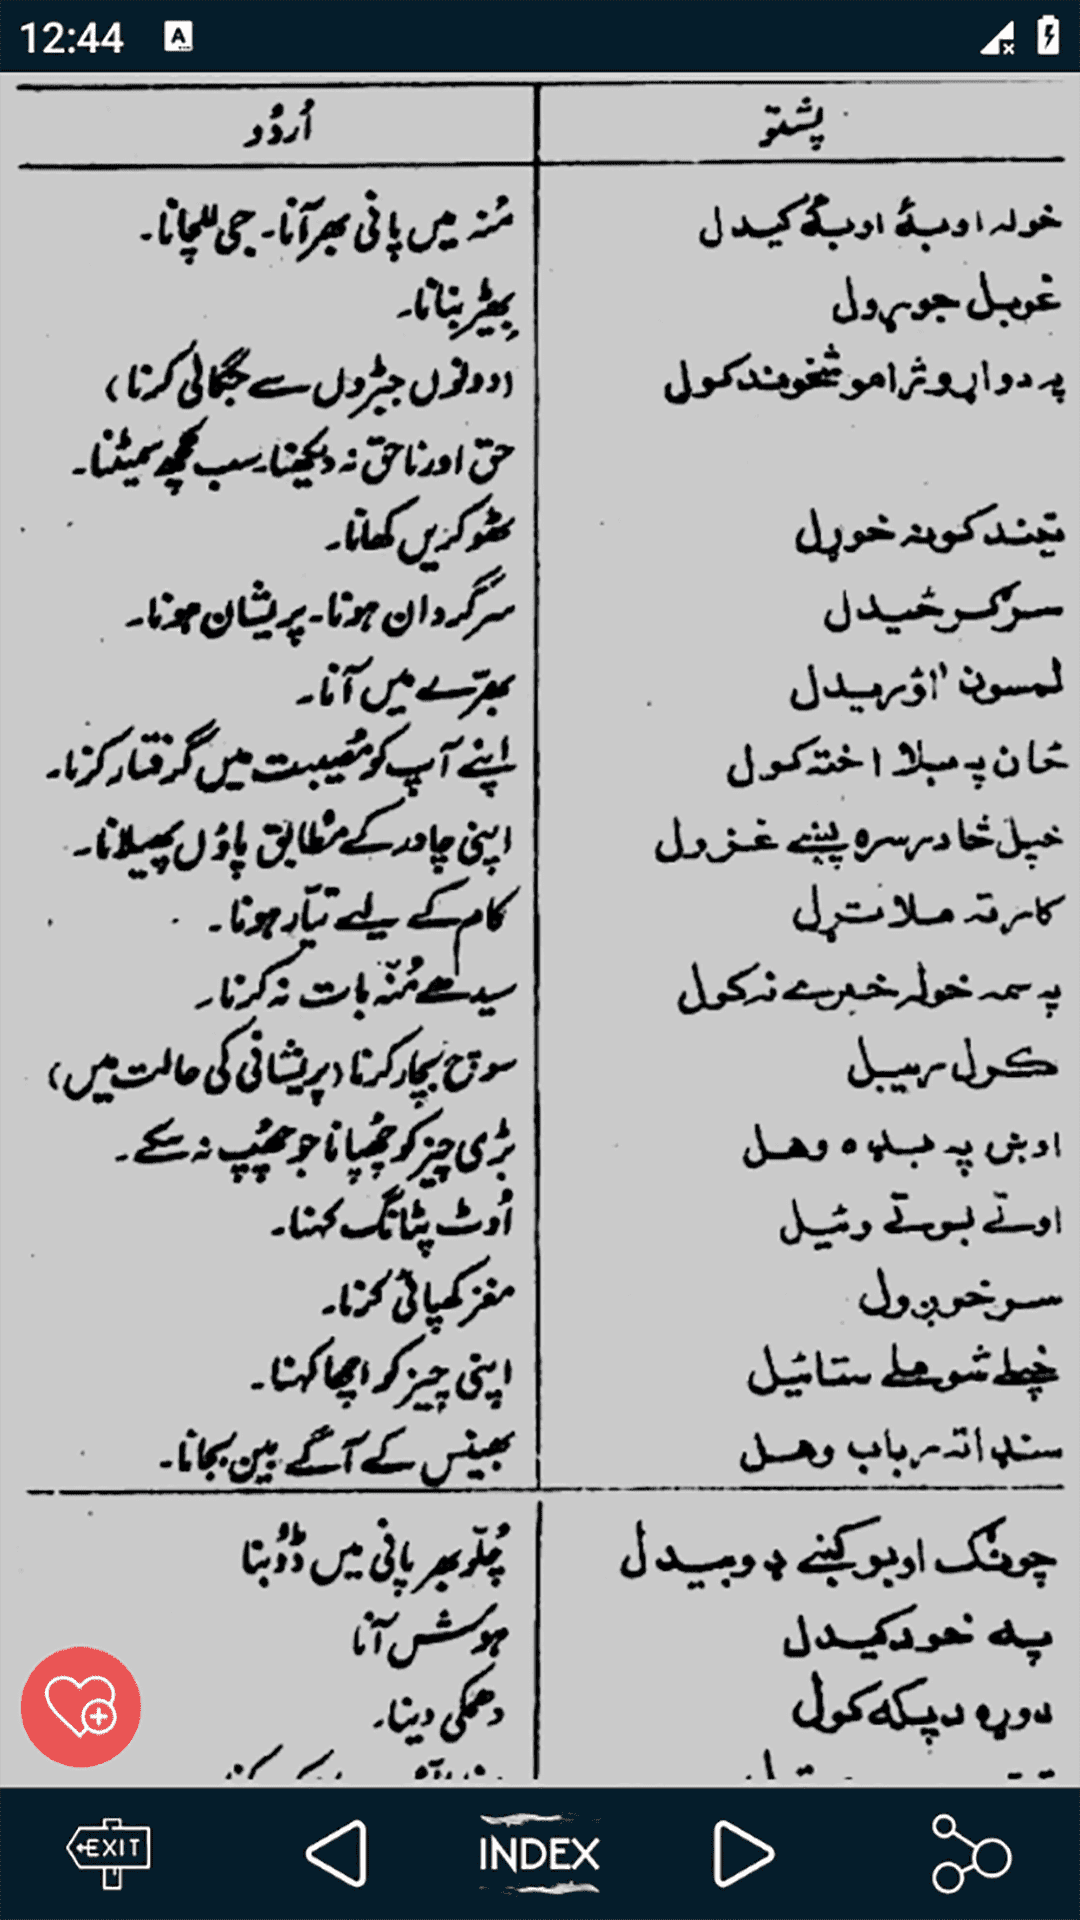 12:44
پشتو اُردُو
خولہ اوبۀ اوبۀ کیدل مُنہ میں پانی بھر آنا۔ جی للچانا۔
غوبل جوړول بھِیڑ بنانا۔
پہ دواړو ژامو شخوند کول (دونوں جبڑوں سے جگالی کرنا)
حق اور ناحق نہ دیکھنا۔ سب کچھ سمیٹنا۔
تیندکونہ خوړل ٹھوکریں کھانا۔
سرګرځیدل سرگردان ہونا۔ پریشان ہونا۔
لمسون اوریدل بھرّے میں آنا۔
ځان پہ بلا اختہ کول اپنے آپ کو مُصیبت میں گرفتار کرنا۔
خپل څادر سرہ پښے غزول اپنی چادر کے مطابق پاؤں پھیلانا۔
کار تہ ملا تړل کام کے لیے تیّار ہونا۔
پہ سمہ خولہ خبرے نہ کول سیدھے مُنہ بات نہ کرنا۔
کول ریبل سوچ بچار کرنا (پریشانی کی حالت میں)
اوښ پہ بډہ وھل بڑی چیز کو چُھپانا جو چُھپ نہ سکے۔
اوتے بوتے وئیل اُوٹ پٹانگ کہنا۔
سر خوږول مغز کھپائی کرنا۔
خپلے شوملے ستائیل اپنی چیز کو اچھا کہنا۔
سنډا تہ رباب وھل بھینس کے آگے بین بجانا۔
چونګ اوبو کښے ډوبیدل چُلّو بھر پانی میں ڈُوبنا
پہ خود کیدل ہوش آنا
دوړہ دپکہ کول دھمکی دینا۔
EXIT
INDEX